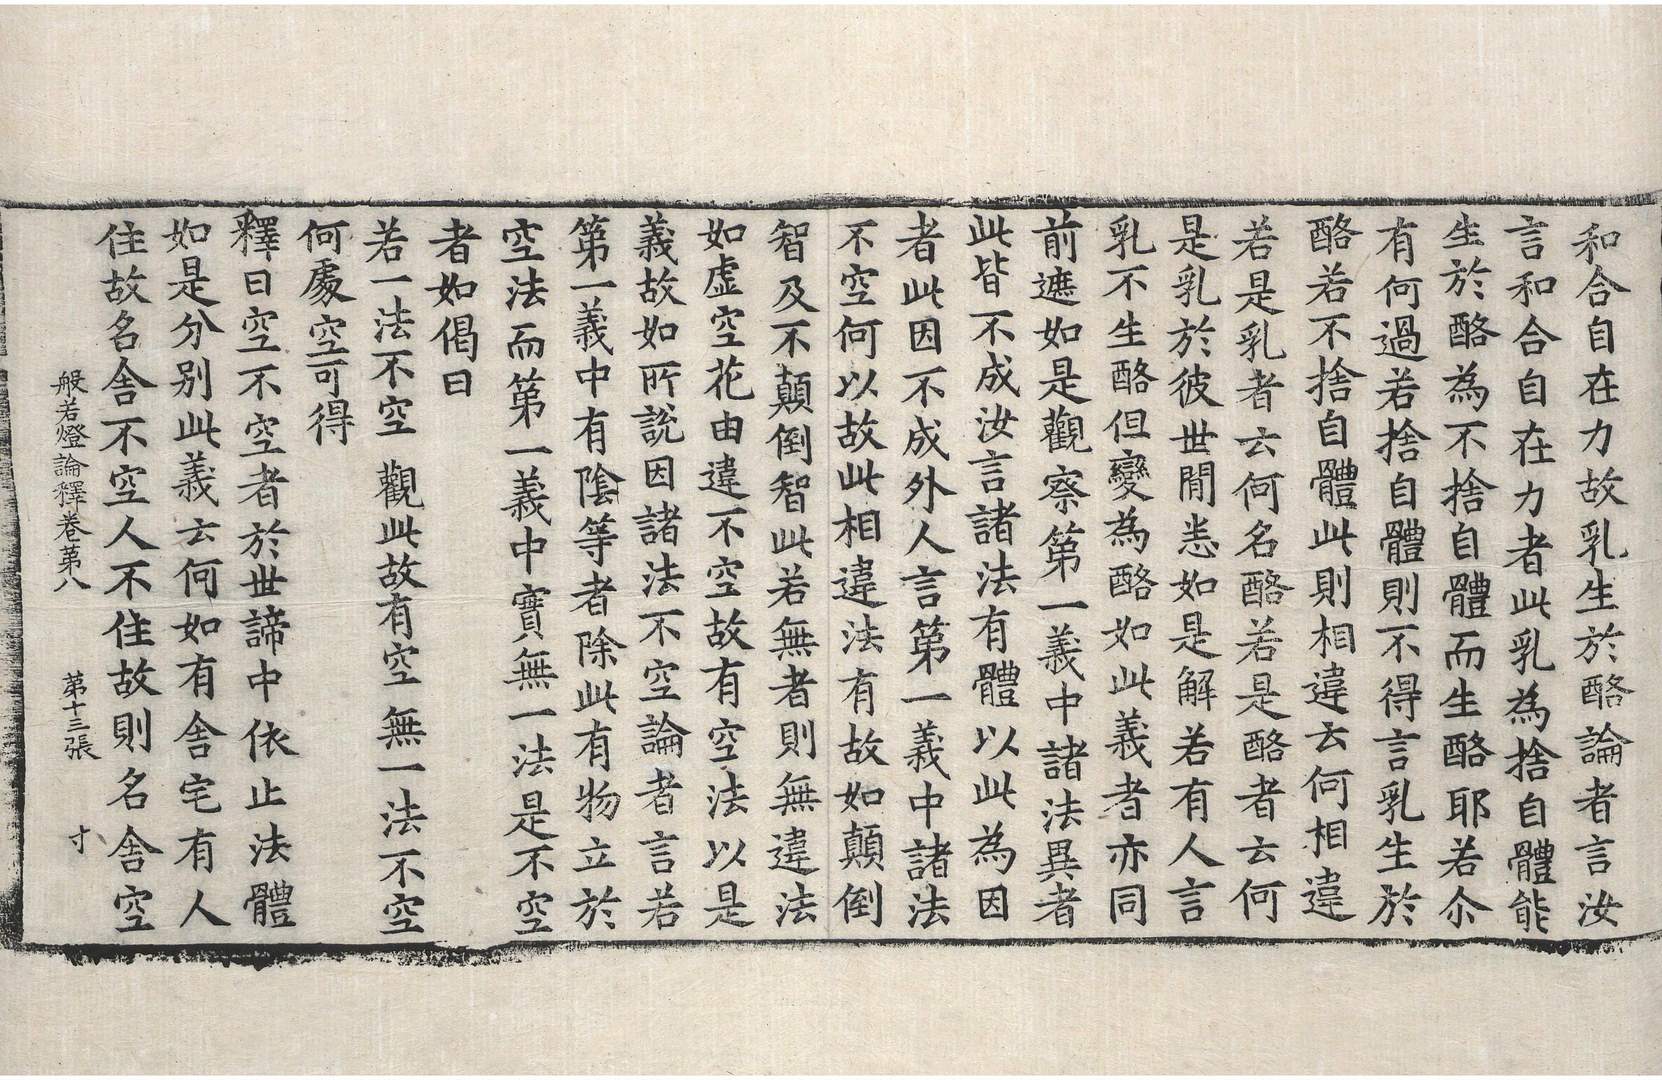 和合自在力故乳生於酪論者言汝
言和合自在力者此乳為捨自體能
生於酪為不捨自體而生酪耶若尒
有何過若捨自體則不得言乳生於
酪若不捨自體此則相違云何相違
若是乳者云何名酪若是酪者云何
是乳於彼世間悉如是解若有人言
乳不生酪但變為酪如此義者亦同
前遮如是觀察第一義中諸法異者
此皆不成汝言諸法有體以此為因
者此因不成外人言第一義中諸法
不空何以故此相違法有故如顛倒
智及不顛倒智此若無者則無違法
如虛空花由違不空故有空法以是
義故如所說因諸法不空論者言若
第一義中有陰等者除此有物立於
空法而第一義中實無一法是不空
者如偈曰
若一法不空 觀此故有空 無一法不空
何處空可得
釋曰空不空者於世諦中依止法體
如是分別此義云何如有舍宅有人
住故名舍不空人不住故則名舍空
般若燈論釋卷第八 第十三張 寸